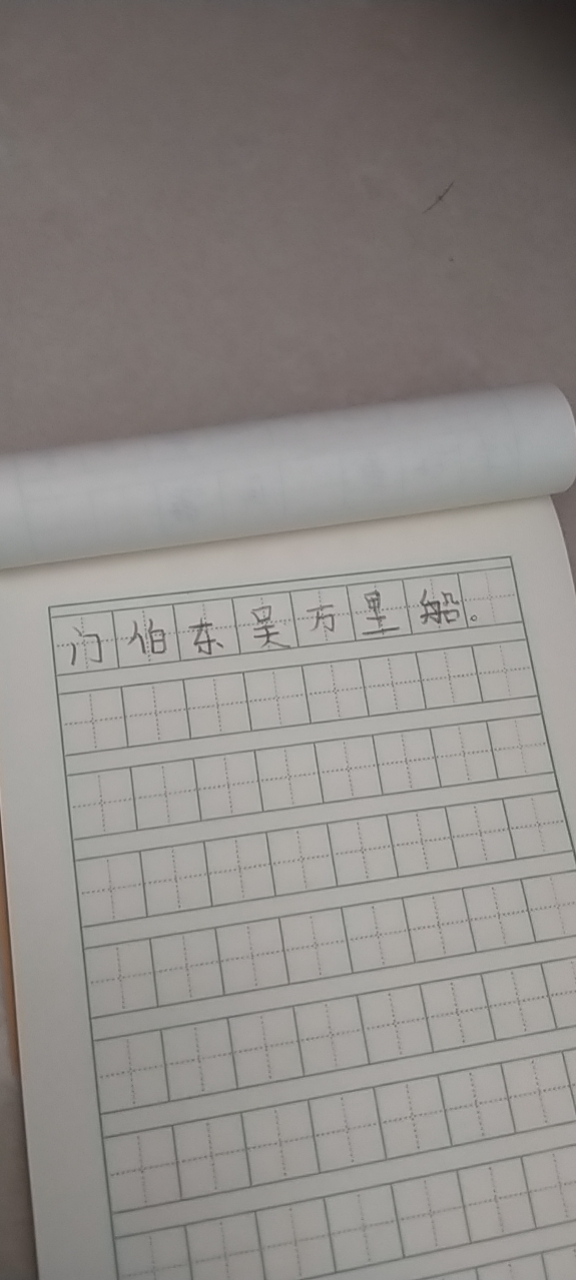 门伯东吴万里船。